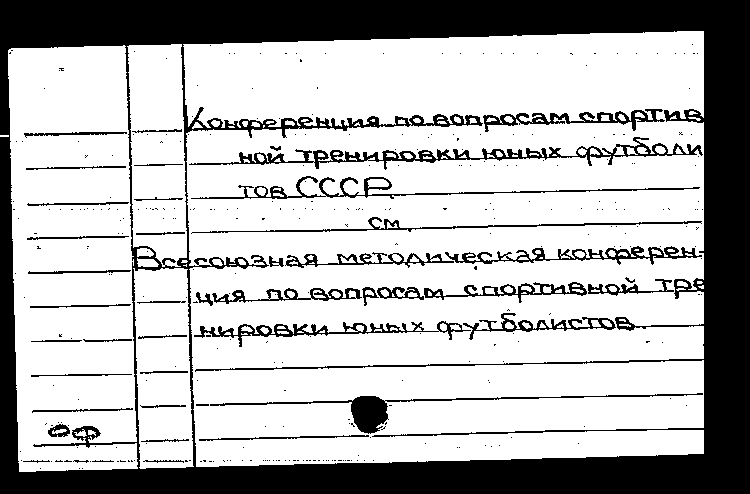 Конференция по вопросам спортив
ной тренировки юных футболи
тов СССР.
см.
Всесоюзная методическая конферен-
ция по вопросам спортивной тре
нировки юных футболистов.
оф